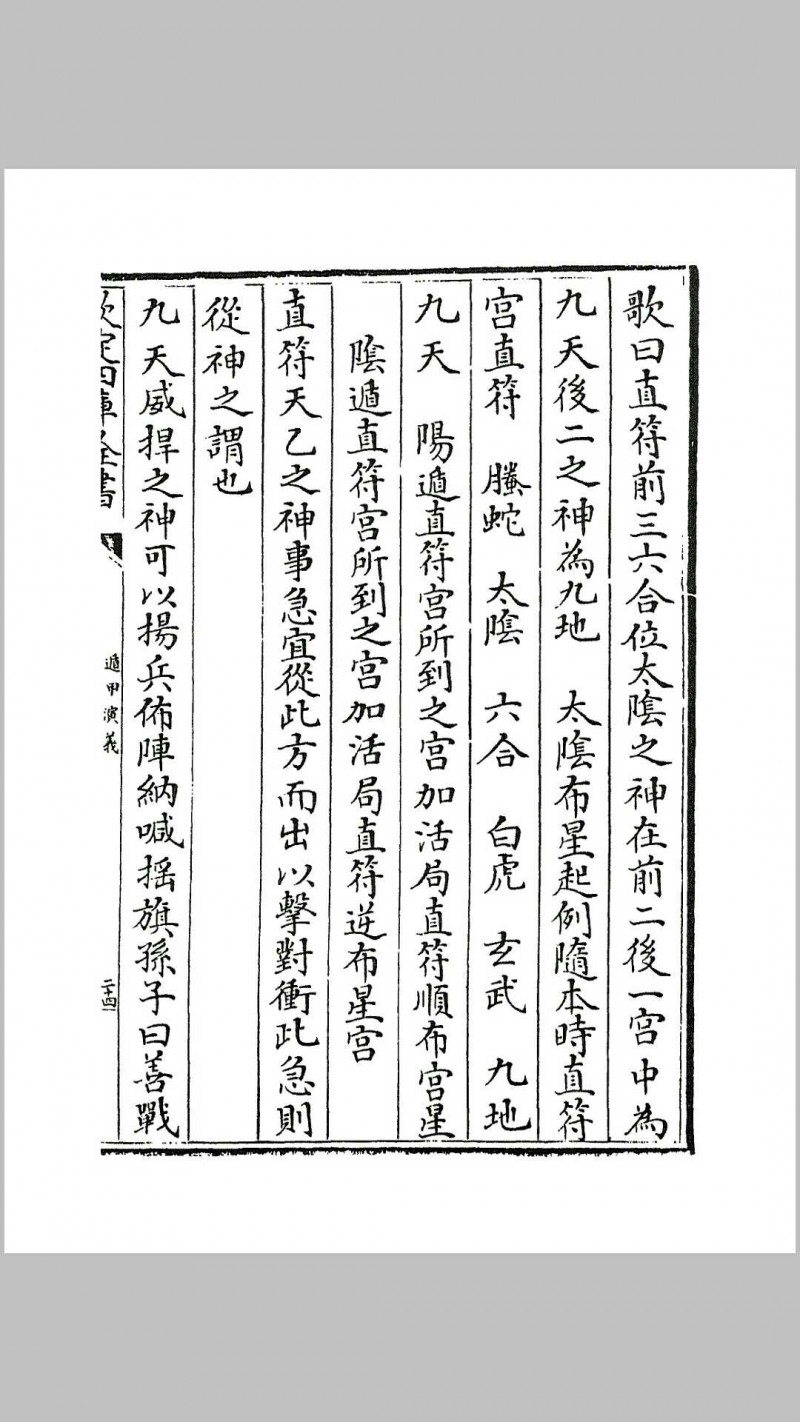 歌曰直符前三六合位太陰之神在前二後一宫中為
九天後二之神為九地　太陰布星起例隨本時直符
宫直符　螣蛇　太陰　六合　白虎　玄武　九地
九天　陽遁直符宫所到之宫加活局直符順布宫星
陰遁直符宫所到之宫加活局直符逆布星宫
直符天乙之神事急宜從此方而出以擊對衝此急則
從神之謂也
九天威捍之神可以揚兵佈陣納喊摇旗孫子曰善戰
欽定四庫全書
遁甲演義
二十四